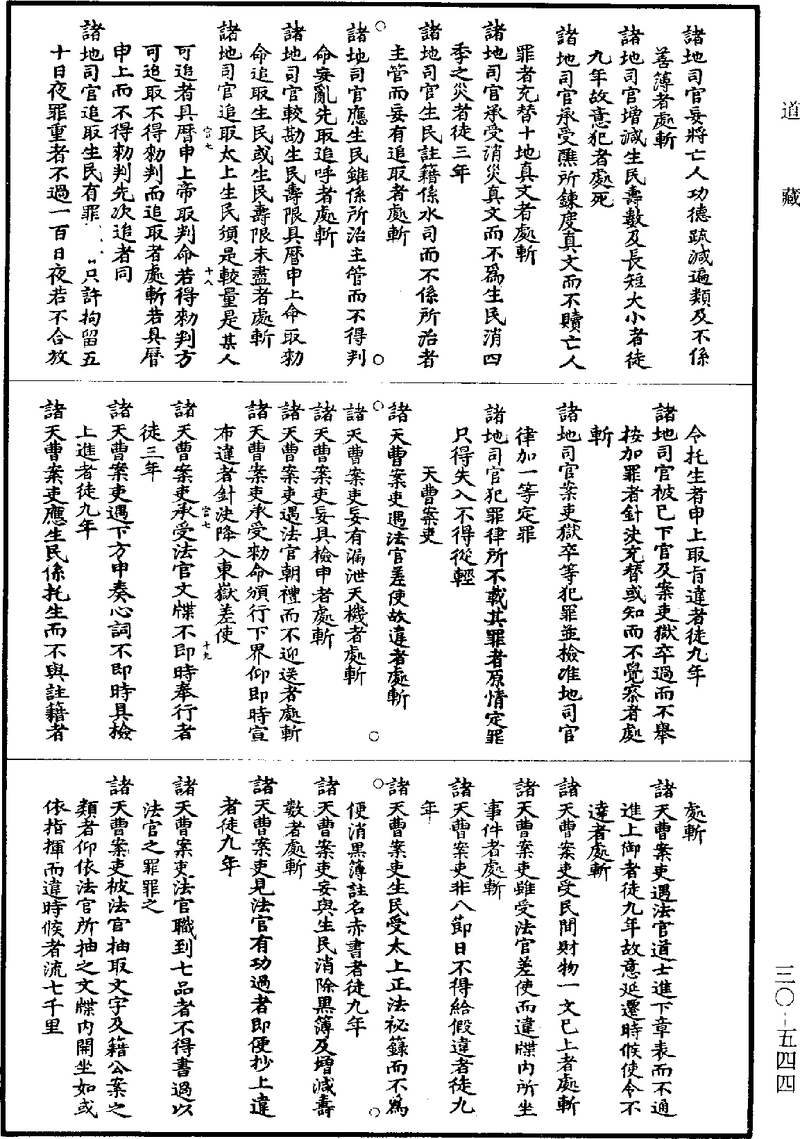 道藏
諸地司官妄將亡人功德疏減遍類及不係
善簿者處斬
諸地司官增減生民壽數及長短大小者徒
九年故意犯者處死
諸地司官承受醮所鍊度真文而不贖亡人
罪者充替十地真文者處斬
諸地司官承受消災真文而不爲生民消四
季之災者徒三年
諸地司官生民註籍係水司而不係所治者
主管而妄有追取者處斬
諸地司官應生民雖係所治主管而不得判
命妄亂先取追呼者處斬
諸地司官較勘生民壽限具曆申上命取勑
命追取生民或生民壽限未盡者處斬
諸地司官追取太上生民須是較量是某人
可追者具曆申上帝取判命若得勑判方
可追取不得勑判而追取者處斬若具曆
申上而不得勑判先次追者同
諸地司官追取生民有罪只許拘留五
十日夜罪重者不過一百日夜若不合放
令托生者申上取旨違者徒九年
諸地司官被已下官及案吏獄卒過而不舉
按加罪者針決充替或知而不覺察者處
斬
諸地司官案吏獄卒等犯罪並檢准地司官
律加一等定罪
諸地司官犯罪律所不載其罪者原情定罪
只得失入不得從輕
天曹案吏
諸天曹案吏遇法官差使故違者處斬
諸天曹案吏妄有漏泄天機者處斬
諸天曹案吏妄具檢申者處斬
諸天曹案吏遇法官朝禮而不迎送者處斬
諸天曹案吏承受勑命頒行下界仰即時宣
布違者針決降入東嶽差使
諸天曹案吏承受法官文牒不即時奉行者
徒三年
諸天曹案吏遇下方申奏心詞不即時具檢
上進者徒九年
諸天曹案吏應生民係托生而不與註籍者
處斬
諸天曹案吏遇法官道士進下章表而不通
進上御者徒九年故意延遷時候使令不
達者處斬
諸天曹案吏受民間財物一文已上者處斬
諸天曹案吏雖受法官差使而違牒內所坐
事件者處斬
諸天曹案吏非八節日不得給假違者徒九
年
諸天曹案吏生民受太上正法祕籙而不爲
便消黑簿註名赤書者徒九年
諸天曹案吏妄與生民消除黑簿及增減壽
數者處斬
諸天曹案吏見法官有功過者即便抄上違
者徒九年
諸天曹案吏法官職到七品者不得書過以
法官之罪罪之
諸天曹案吏被法官抽取文字及籍公案之
類者仰依法官所抽之文牒內開坐如或
依指揮而違時候者流七千里
三〇-五四四